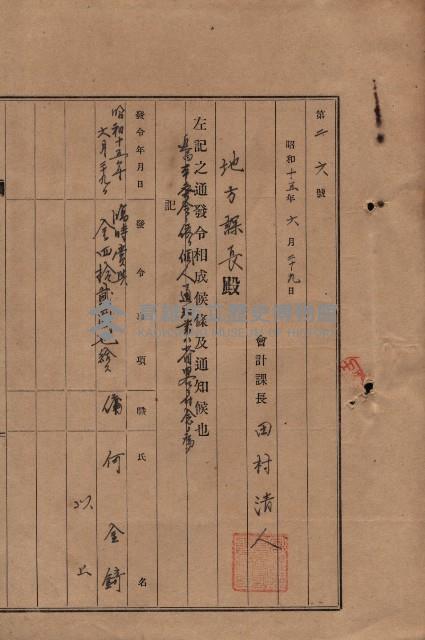 第二六號
昭和十五年六月二十九日
會計課長 田村清人
地方課長殿
左記之通發令相成候條及通知候也
記
發令年月日 發令事項 職氏名
昭和十五年六月二十九日 臨時賞與 金四拾貳円七拾 傭 何金錡
以上
高雄市立歷史博物館
KAOHSIUNG MUSEUM OF HISTORY